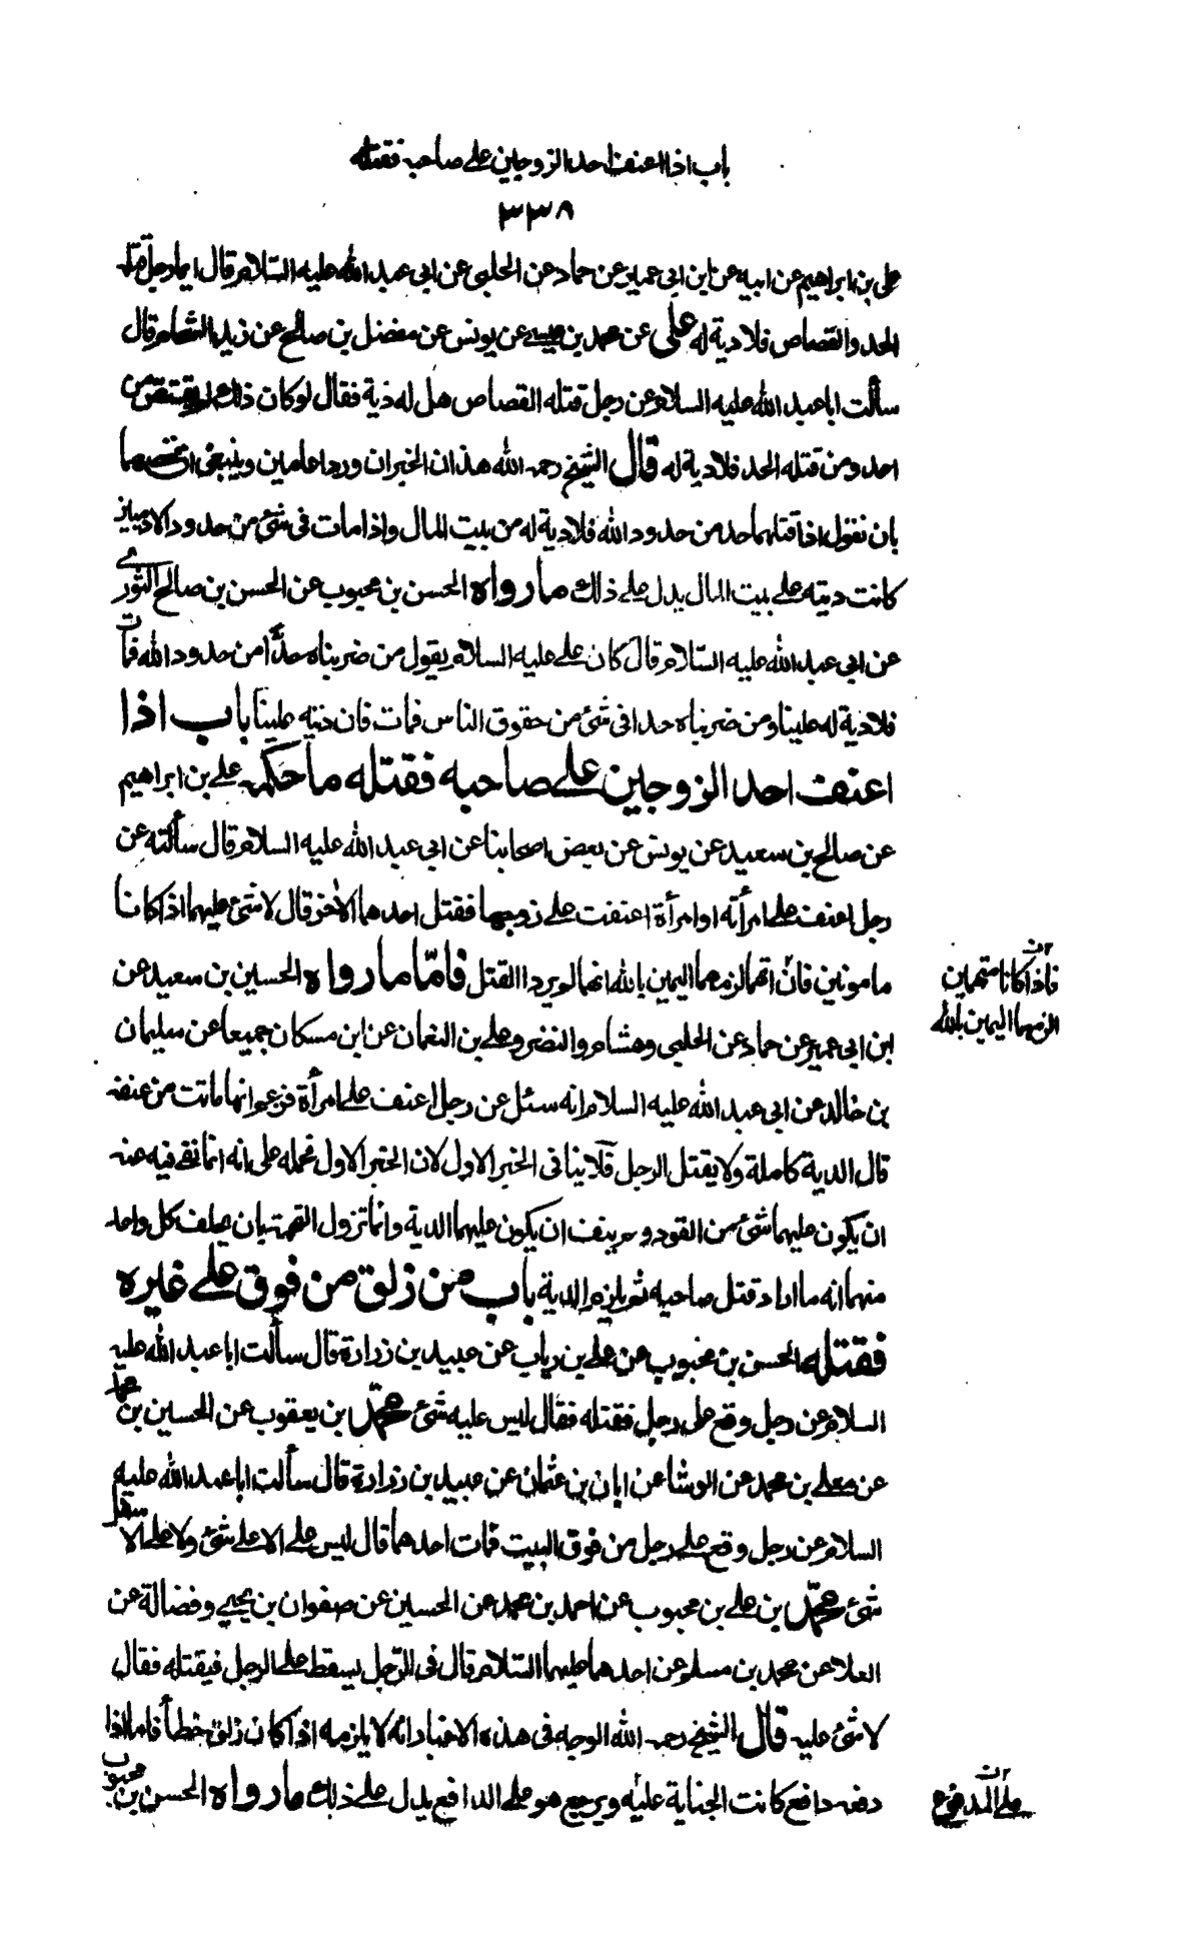 باب اذا اعنف احد الزوجين على صاحبه فقتله
٣٣٨
على بن ابراهيم عن ابيه عن ابن ابى عمير عن حماد عن الحلبى عن ابى عبد الله عليه السلام قال ايما رجل قتله
الحد والقصاص فلا دية له على عن محمد بن عيسى عن يونس عن مفضل بن صالح عن زيد الشحام قال
سألت ابا عبد الله عليه السلام عن رجل قتله القصاص هل له دية فقال لو كان ذلك لم يقتص من
احد ومن قتله الحد فلا دية له قال الشيخ رحمه الله هذان الخبران وردا عامين وينبغى ان نخصهما
بان نقول اذا قتلهما حد من حدود الله فلا دية له من بيت المال واذا مات فى شئ من حدود الادميين
كانت ديته على بيت المال يدل على ذلك ما رواه الحسن بن محبوب عن الحسن بن صالح الثورى
عن ابى عبد الله عليه السلام قال كان على عليه السلام يقول من ضربناه حدّا من حدود الله فمات
فلا دية له علينا ومن ضربناه حدا فى شئ من حقوق الناس فمات فان ديته علينا باب اذا
اعنف احد الزوجين على صاحبه فقتله ما حكمه على بن ابراهيم
عن صالح بن سعيد عن يونس عن بعض اصحابنا عن ابى عبد الله عليه السلام قال سألته عن
رجل اعنف على امرأته او امرأة اعنفت على زوجها فقتل احدهما الآخر قال لا شئ عليهما اذا كانا
مامونين فان اتهما لزمهما اليمين بالله انهما لم يردا القتل فامّا ما رواه الحسين بن سعيد عن
فاذا كانا متهمين
الزمهما اليمين بالله
ابن ابى عمير عن حماد عن الحلبى وهشام والنضر وعلى بن النعمان عن ابن مسكان جميعا عن سليمان
بن خالد عن ابى عبد الله عليه السلام انه سئل عن رجل اعنف على امرأة فزعم انها ماتت من عنفه
قال الدية كاملة ولا يقتل الرجل فلا ينافى الخبر الاول لان الخبر الاول نحمله على انه انما نفى فيه عنه
ان يكون عليهما شئ من القود ولم ينف ان يكون عليهما الدية وانما تزول التهمة بان يحلف كل واحد
منهما انه ما اراد قتل صاحبه ثم يلزم الدية باب من زلق من فوق على غيره
فقتله الحسن بن محبوب عن على بن رياب عن عبيد بن زرارة قال سألت ابا عبد الله عليه
السلام عن رجل وقع على رجل فقتله فقال ليس عليه شئ محمّد بن يعقوب عن الحسين بن محمد
عن معلى بن محمد عن الوشا عن ابان بن عثمان عن عبيد بن زرارة قال سألت ابا عبد الله عليه
السلام عن رجل وقع على رجل من فوق البيت فمات احدهما قال ليس على الاعلى شئ ولا على الاسفل
شئ محمّد بن على بن محبوب عن احمد بن محمد عن الحسين عن صفوان بن يحيى وفضالة عن
العلا عن محمد بن مسلم عن احدهما عليهما السلام قال فى الرّجل يسقط على الرجل فيقتله فقال
لا شئ عليه قال الشيخ رحمه الله الوجه فى هذه الاخبار انه لا يلزمه اذا كان زلق خطأ فاما اذا
دفعه دافع كانت الجناية عليه ويرجع هو على الدافع يدل على ذلك ما رواه الحسن بن محبوب
على المدفوع